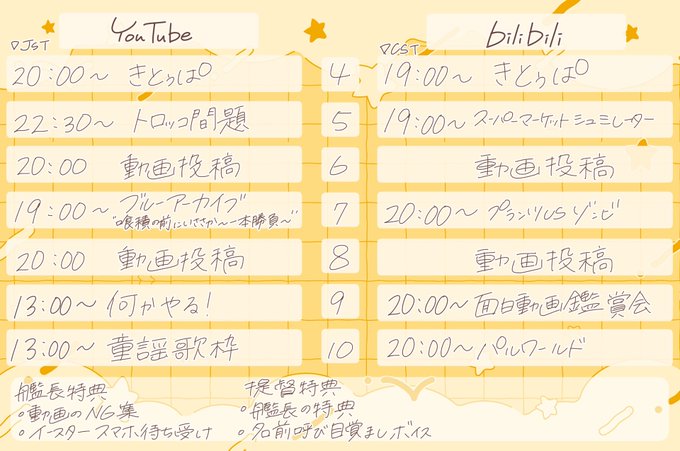 YouTube
bilibili
▽JST
▽CST
20:00～ きとぅはP 4 19:00～ きとぅはP
22:30～ トロッコ問題 5 19:00～ スーパーマーケットシュミレーター
20:00 動画投稿 6 動画投稿
19:00～ ブルーアーカイブ 7 20:00～ プランツvsゾンビ
"喰積の前にいざさか～一本勝負～"
20:00 動画投稿 8 動画投稿
13:00～ 何かやる! 9 20:00～ 面白動画鑑賞会
13:00～ 童謡歌枠 10 20:00～ パルワールド
艦長特典
○動画のNG集
○イースタースマホ待ち受け
提督特典
○艦長の特典
○名前呼び目覚ましボイス